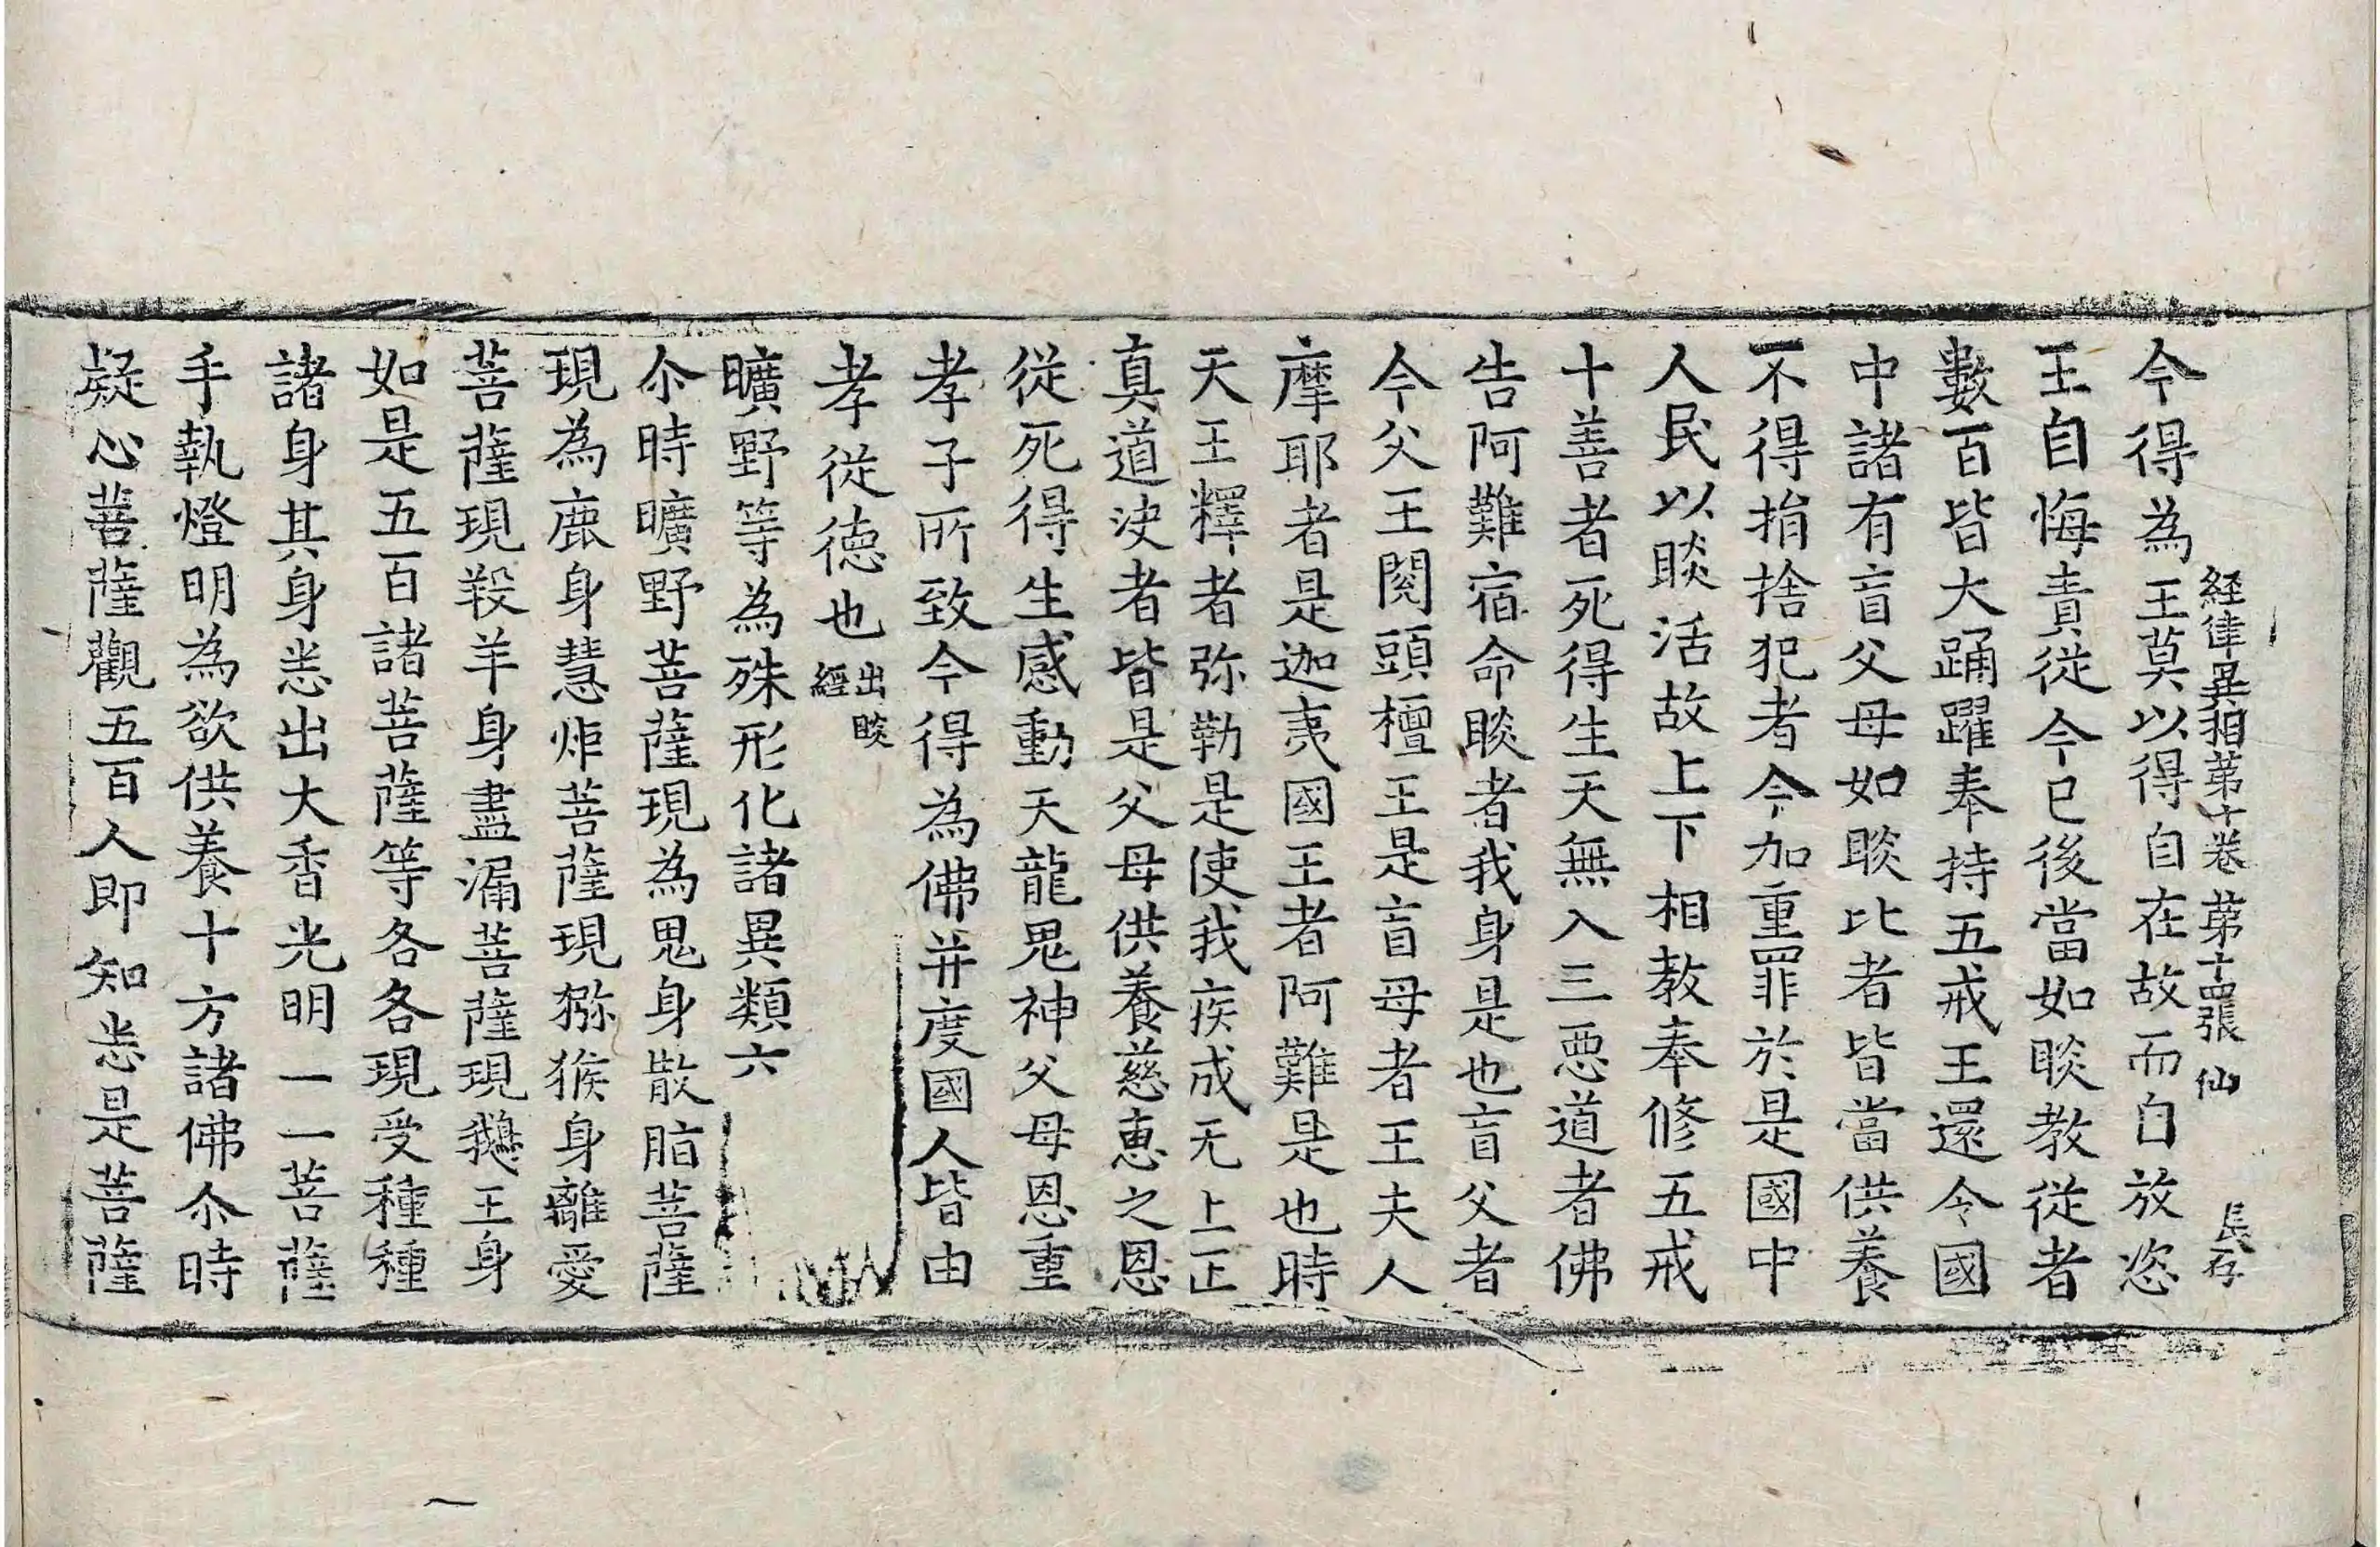 経律異相苐十卷 苐十四張 仙 長存
今得為王莫以得自在故而自放恣
王自悔責従今已後當如睒教従者
數百皆大踊躍奉持五戒王還令國
中諸有盲父母如睒比者皆當供養
不得捐捨犯者令加重罪於是國中
人民以睒活故上下相教奉修五戒
十善者死得生天無入三惡道者佛
告阿難宿命睒者我身是也盲父者
今父王閱頭檀王是盲母者王夫人
摩耶者是迦夷國王者阿難是也時
天王釋者弥勒是使我疾成无上正
真道決者皆是父母供養慈恵之恩
従死得生感動天龍鬼神父母恩重
孝子所致今得為佛并度國人皆由
孝従德也出睒經
曠野等為殊形化諸異類六
尒時曠野菩薩現為鬼身散脂菩薩
現為鹿身慧炬菩薩現獼猴身離愛
菩薩現羖羊身盡漏菩薩現鵝王身
如是五百諸菩薩等各各現受種種
諸身其身悉出大香光明一一菩薩
手執燈明為欲供養十方諸佛尒時
疑心菩薩觀五百人即知悉是菩薩